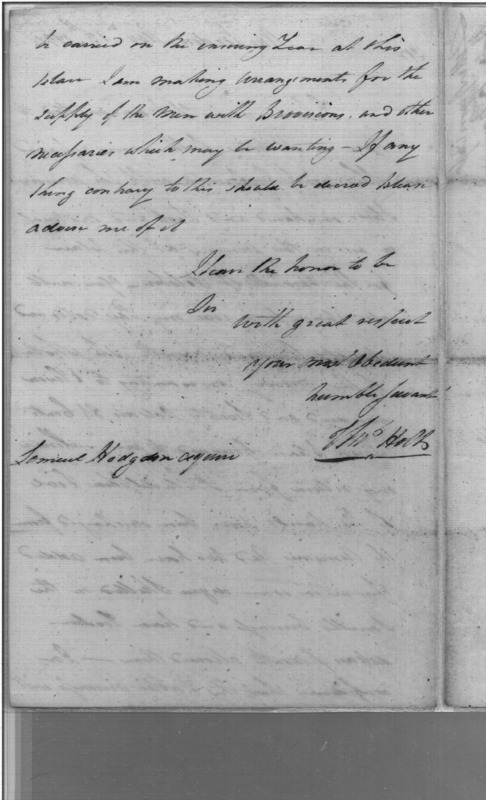 be carried on the ensuing Year at this
place I am making arrangements for the
supply of the men with Provisions, and other
necessaries which may be wanting – If any
thing contrary to this should be decired please
advise me of it
I have the honor to be
Sir
with great respect
your mo.t Obedient
humble servant
Tho.s Holt
Samuel Hodgdon esquire